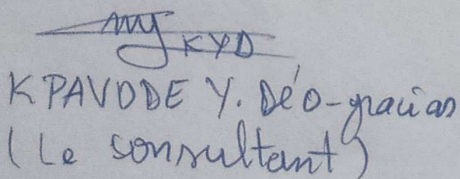 KYD
KPAVODE Y. Déo-gracias
(Le consultant)